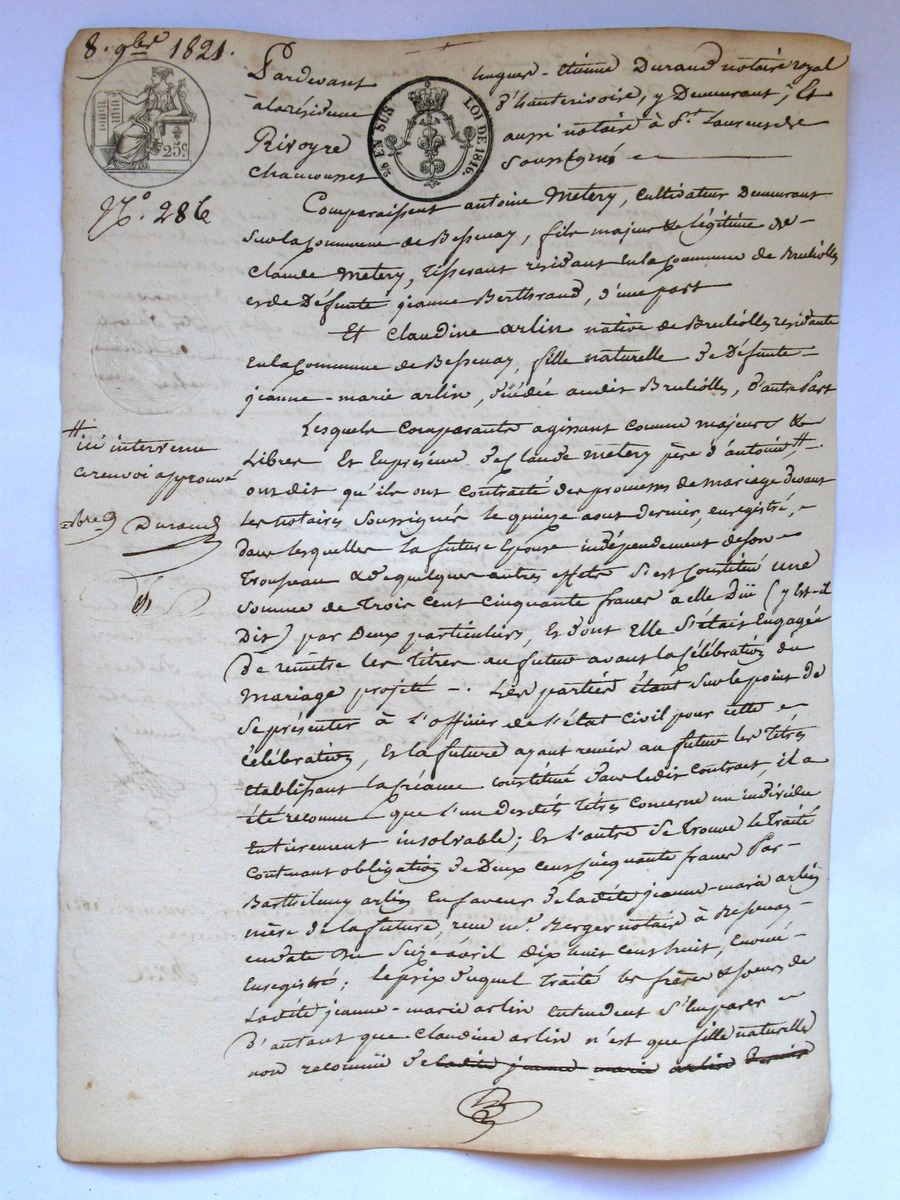 8. 9bre 1821.
25c.
26 EN SUS LOI DE 1816.
N°. 286
Pardevant hugues-Etienne Durand notaire royal
à la résidence d'hauterivoire, y Demeurant, Et
Rivoyre aussi notaire à St. Laurent de
Chamousset Soussigné
Comparaissent antoine Metery, cultivateur Demeurant
sur la Commune de Bessenay, fils majeur & légitime de
Claude Metery, tisserant résidant En la Commune de Brullolles
et de Défunte jeanne Berthraud, d'une part
Et Claudine arlin native de Brullolles residante
En la Commune de Bessenay, fille naturelle de Défunte
jeanne-marie arlin, décédée audit Brullolles, d'autre Part
Lesquels comparants agissant comme majeurs &
Libres Et En présence de Claude metery père d'antoine #
ont dit qu'ils ont contracté des promesses de mariage devant
Les notaires soussignés le quinze aout dernier, enregistré,
dans lesquelles la future Epouse indépendement de son
Trousseau & de quelques autres effets s'est Constitué une
somme de Trois cent cinquante francs à elle Düe (y Est-il
Dit) par Deux particuliers, Et dont Elle s'était Engagée
De remettre les titres au futur avant la célébration du
mariage projeté -. Les parties étant sur le point de
se présenter à l'officier de l'état civil pour cette
célébration, Et la future ayant remis au futur les Titres
établissant la créance constitué dans ledit contrat, il a
été reconnu que l'un desdits titres concerne un individu
Entierement insolvable; Et l'autre se trouve le Traité
contenant obligation de Deux cent cinquante francs Par
Barthélemy arlin En faveur de ladite jeanne-marie arlin
mère de la future, reçu me. Berger notaire à Bessenay
en date Du Seize avril dix huit cent huit,
Enregistré; le prix duquel Traité les frères & soeurs de
Ladite jeanne-marie arlin entendent s'Emparer
D'autant que Claudine arlin n'est que fille naturelle
non reconnüe de ladite jeanne marie arlin
# ici intervenu
ce renvoi approuvé
Durand